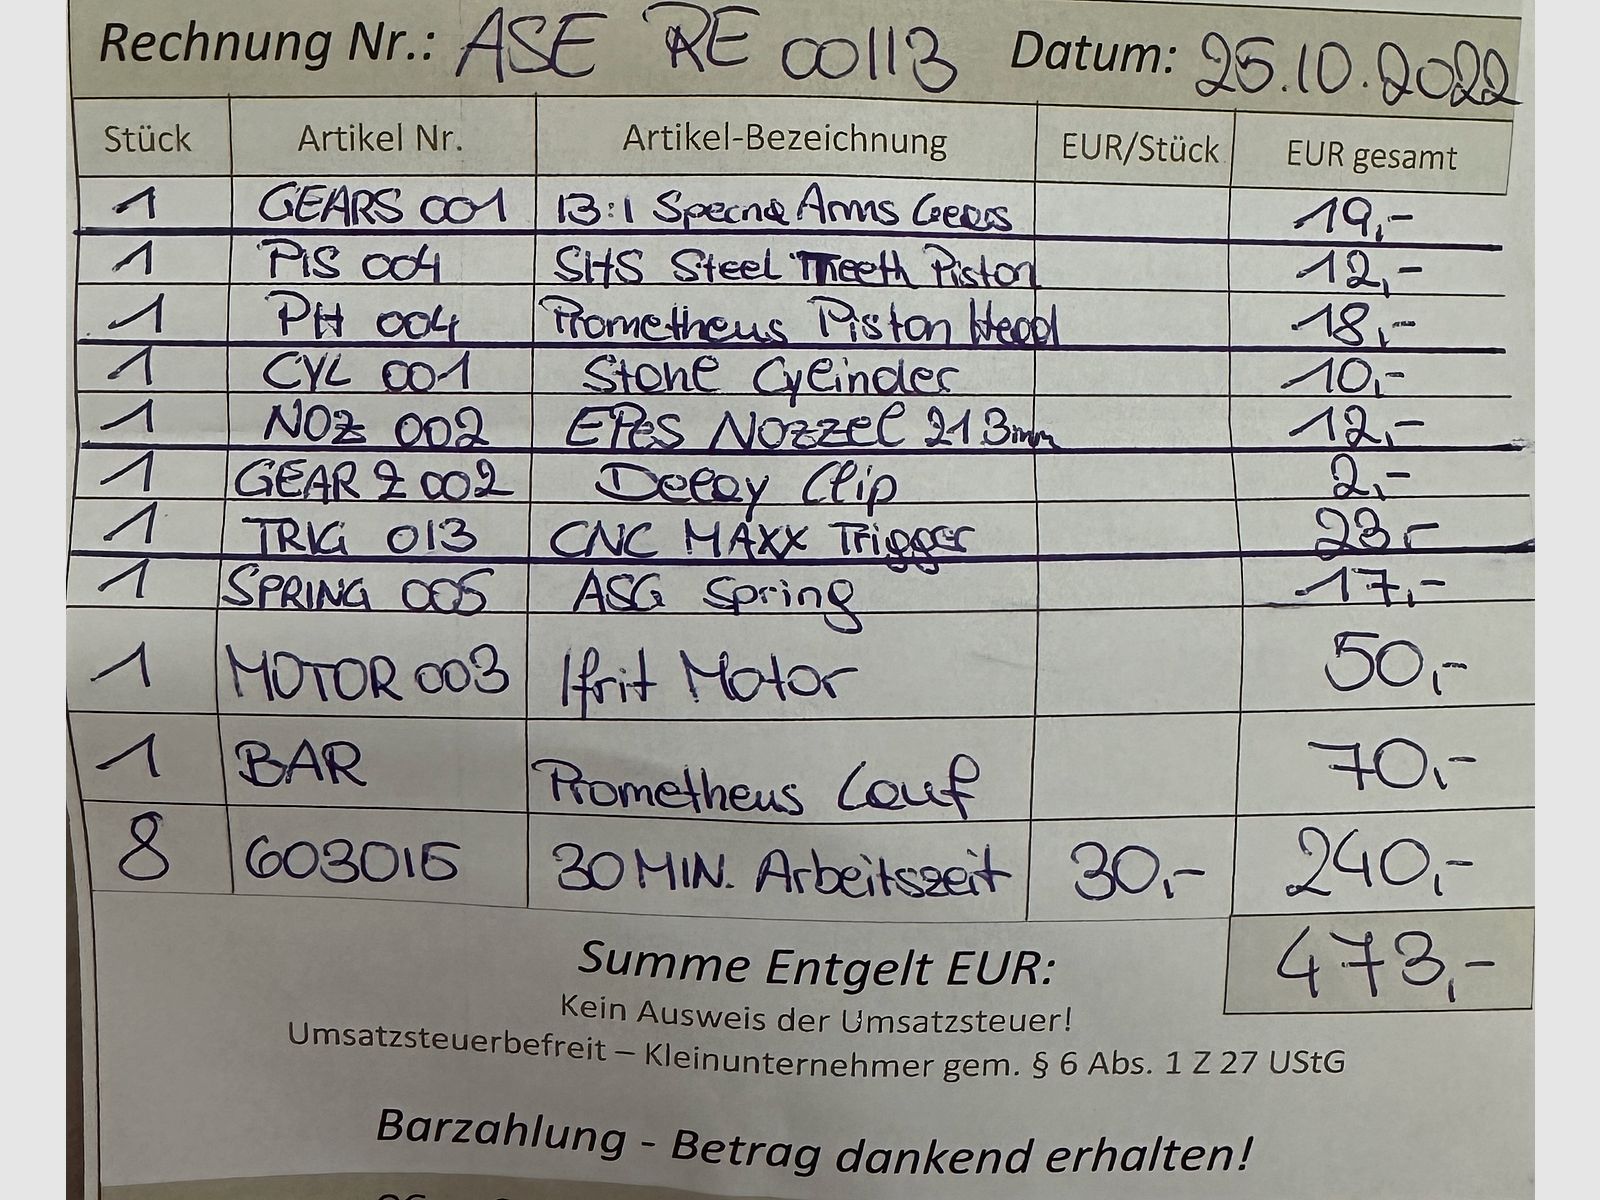 Rechnung Nr.: ASE RE 00113 Datum: 25.10.2022
Stück Artikel Nr. Artikel-Bezeichnung EUR/Stück EUR gesamt
1 GEARS 001 13:1 Specna Arms Gears 19,-
1 PIS 004 SHS Steel Theeth Piston 12,-
1 PH 004 Prometheus Piston Head 18,-
1 CYL 001 Stone Cylinder 10,-
1 NOZ 002 EPeS Nozzel 21 3mm 12,-
1 GEAR Z 002 Delay Clip 2,-
1 TRIG 013 CNC MAXX Trigger 23,-
1 SPRING 005 ASG Spring 17,-
1 MOTOR 003 Ifrit Motor 50,-
1 BAR Prometheus Lauf 70,-
8 603015 30 MIN. Arbeitszeit 30,- 240,-
Summe Entgelt EUR: 473,-
Kein Ausweis der Umsatzsteuer!
Umsatzsteuerbefreit – Kleinunternehmer gem. § 6 Abs. 1 Z 27 UStG
Barzahlung - Betrag dankend erhalten!